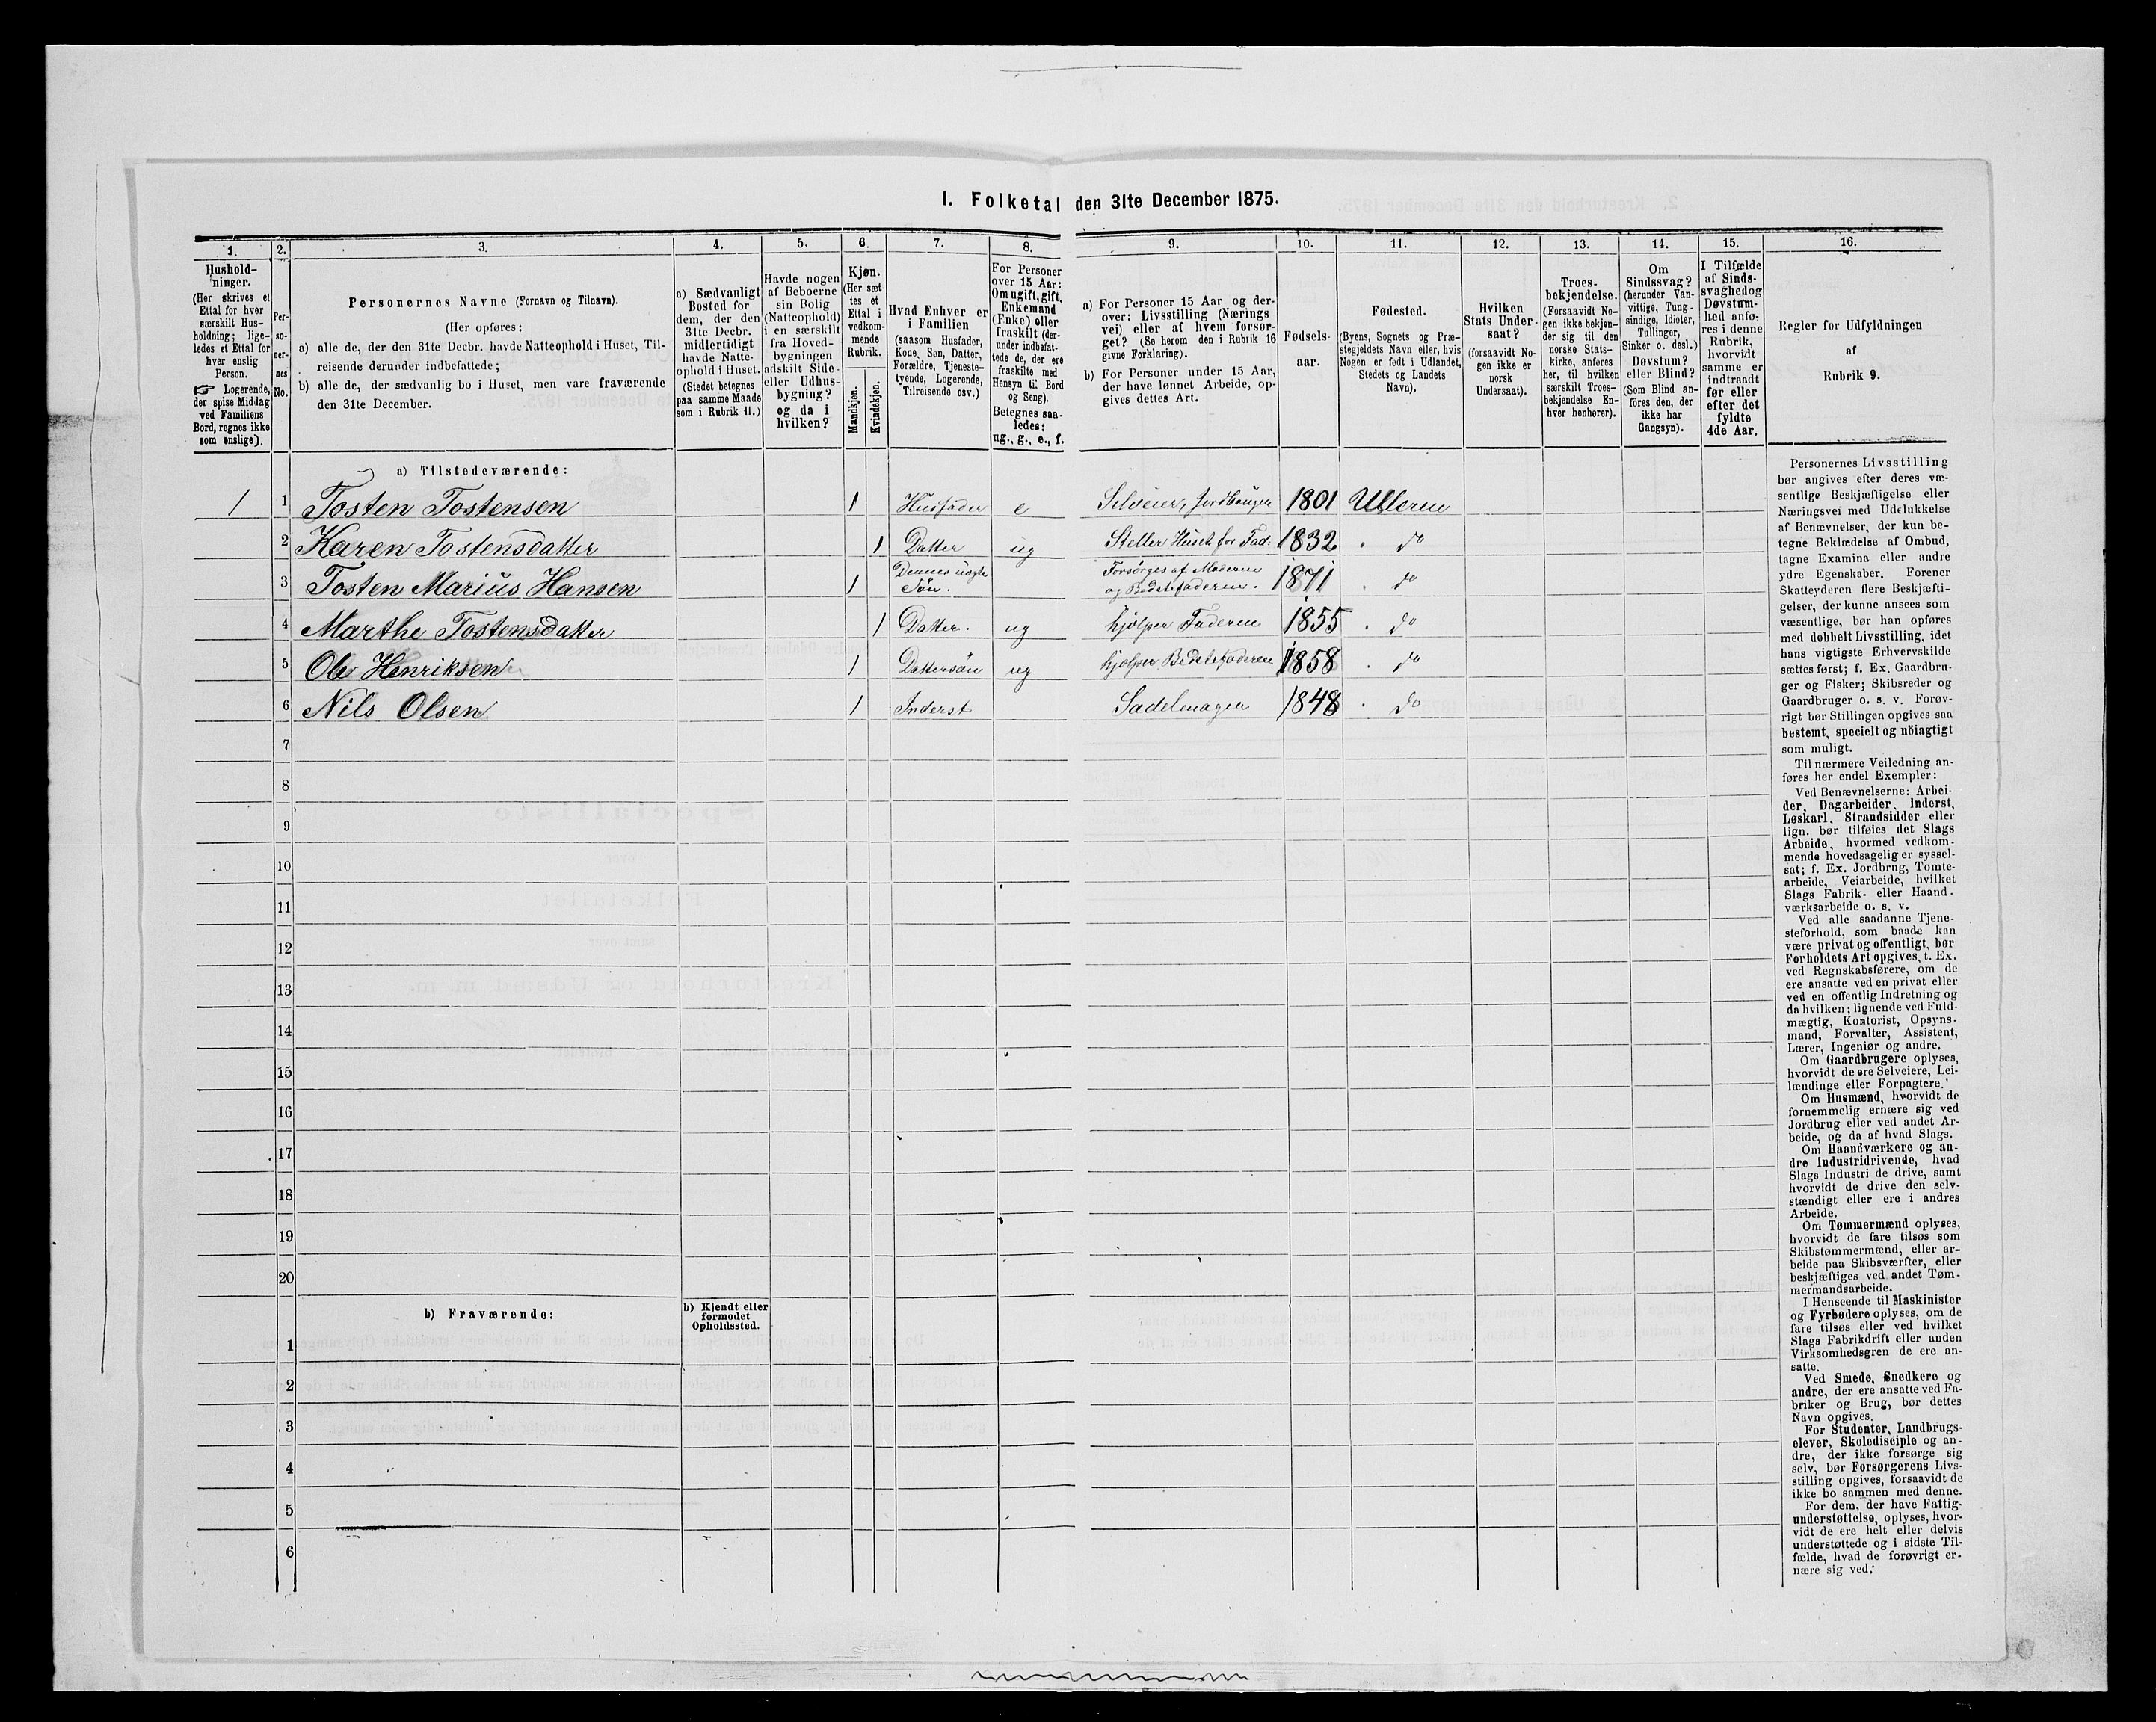 1. Folketal den 31te December 1875.
1.
Hushold-
ninger.
(Her skrives et
Ettal for hver
særskilt Hus-
holdning; lige-
ledes et Ettal for
hver enslig
Person.
☞ Logerende,
der spise Middag
ved Familiens
Bord, regnes ikke
som enslige).
2.
Per-
so-
ner-
nes
No.
3.
Personernes Navne (Fornavn og Tilnavn).
(Her opføres:
a) alle de, der den 31te Decbr. havde Natteophold i Huset, Til-
reisende derunder indbefattede;
b) alle de, der sædvanlig bo i Huset, men vare fraværende
den 31te December.
4.
a) Sædvanligt
Bosted for
dem, der den
31te Decbr.
midlertidigt
havde Natte-
ophold i Huset.
(Stedet betegnes
paa samme Maade
som i Rubrik 11.)
5.
Havde nogen
af Beboerne
sin Bolig
(Natteophold)
i en særskilt
fra Hoved-
bygningen
adskilt Side-
eller Udhus-
bygning?
og da i
hvilken?
6.
Kjøn.
(Her sæt-
tes et
Ettal i
vedkom-
mende
Rubrik.
Mandkjøn.
Kvindekjøn.
7.
Hvad Enhver er
i Familien
(saasom Husfader,
Kone, Søn, Datter,
Forældre, Tjeneste-
tyende, Logerende,
Tilreisende osv.)
8.
For Personer
over 15 Aar:
Om ugift, gift,
Enkemand
(Enke) eller
fraskilt (der-
under indbefat-
tede de, der ere
fraskilte med
Hensyn til Bord
og Seng).
Betegnes saa-
ledes:
ug., g., e., f.
9.
a) For Personer 15 Aar og der-
over: Livsstilling (Nærings
vei) eller af hvem forsør-
get? (Se herom den i Rubrik 16
givne Forklaring).
b) For Personer under 15 Aar,
der have lønnet Arbeide, op-
gives dettes Art.
10.
Fødsels-
aar.
11.
Fødested.
(Byens, Sognets og Præ-
stegjeldets Navn eller, hvis
Nogen er født i Udlandet,
Stedets og Landets
Navn).
12.
Hvilken
Stats Under-
saat?
(forsaavidt No-
gen ikke er
norsk
Undersaat).
13.
Troes-
bekjendelse.
(Forsaavidt No-
gen ikke bekjen-
der sig til den
norske Stats-
kirke, anføres
her, til hvilken
særskilt Troes-
bekjendelse En-
hver henhører).
14.
Om
Sindssvag?
(herunder Van-
vittige, Tung-
sindige, Idioter,
Tullinger,
Sinker o. desl.)
Døvstum?
eller Blind?
(Som Blind an-
föres den, der
ikke har
Gangsyn).
15.
I Tilfælde
af Sinds-
svaghed og
Døvstum-
hed anfø-
res i denne
Rubrik,
hvorvidt
samme er
indtraadt
før eller
efter det
fyldte
4de Aar.
16.
Regler for Udfyldningen
af
Rubrik 9.
a) Tilstedeværende:
1 1 Tosten Tostensen 1 Husfader e Selveier, Jordbruger 1801 Ulleren
2 Karen Tostensdatter 1 Datter ug Steller Huset for Fad. 1832 . do
3 Tosten Marius Hansen 1 Dennes uægte Søn. Forsørges af Moderen og Bedstefaderen. 1871 . do
4 Marthe Tostensdatter 1 Datter. ug hjelper Faderen 1855 . do
5 Ole Henriksen 1 Dattersøn ug hjelper Bedstefaderen 1858 . do
6 Nils Olsen 1 Inderst Sadelmager 1848 . do
7
8
9
10
11
12
13
14
15
16
17
18
19
20
b) Fraværende:
b) Kjendt eller
formodet
Opholdssted.
1
2
3
4
5
6
Personernes Livsstilling
bør angives efter deres væ-
sentlige Beskjæftigelse eller
Næringsvei med Udelukkelse
af Benævnelser, der kun be-
tegne Beklædelse af Ombud,
tagne Examina eller andre
ydre Egenskaber. Forener
Skatteyderen flere Beskjæfti-
gelser, der kunne ansees som
væsentlige, bør han opføres
med dobbelt Livsstilling, idet
hans vigtigste Erhvervskilde
sættes først; f. Ex. Gaardbru-
ger og Fisker; Skibsreder og
Gaardbruger o. s. v. Forøv-
rigt bør Stillingen opgives saa
bestemt, specielt og nöiagtigt
som muligt.
Til nærmere Veiledning an-
føres her endel Exempler:
Ved Benævnelserne: Arbei-
der, Dagarbeider, Inderst,
Løskarl, Strandsidder eller
lign. bør tilføies det Slags
Arbeide, hvormed vedkom-
mende hovedsagelig er syssel-
sat; f. Ex. Jordbrug, Tomte-
arbeide, Veiarbeide, hvilket
Slags Fabrik- eller Haand-
værksarbeide o. s. v.
Ved alle saadanne Tjene-
steforhold, som baade kan
være privat og offentligt, bør
Forholdets Art opgives, t. Ex.
ved Regnskabsførere, om de
ere ansatte ved en privat eller
ved en offentlig Indretning og
da hvilken; lignende ved Fuld-
mægtig, Kontorist, Opsyns-
mand, Forvalter, Assistent,
Lærer, Ingeniør og andre.
Om Gaardbrugere oplyses,
hvorvidt de ere Selveiere, Lei-
lændinge eller Forpagtere.
Om Husmænd, hvorvidt de
fornemmelig ernære sig ved
Jordbrug eller ved andet Ar-
beide, og da af hvad Slags.
Om Haandværkere og an-
dre Industridrivende, hvad
Slags Industri de drive, samt
hvorvidt de drive den selv-
stændigt eller ere i andres
Arbeide.
Om Tømmermænd oplyses,
hvorvidt de fare tilsøs som
Skibstømmermænd, eller ar-
beide paa Skibsværfter, eller
beskjæftiges ved andet Tøm-
mermandsarbeide.
I Henseende til Maskinister
og Fyrbødere oplyses, om de
fare tilsøs eller ved hvilket
Slags Fabrikdrift eller anden
Virksomhedsgren de ere an-
satte.
Ved Smede, Snedkere og
andre, der ere ansatte ved Fa-
briker og Brug, bør dettes
Navn opgives.
For Studenter, Landbrugs-
elever, Skoledisciple og an-
dre, der ikke forsørge sig
selv, bør Forsørgerens Livs-
stilling opgives, forsaavidt de
ikke bo sammen med denne.
For dem, der have Fattig-
understøttelse, oplyses, hvor-
vidt de ere helt eller delvis
understøttede og i sidste Til-
fælde, hvad de forøvrigt er-
nære sig ved.